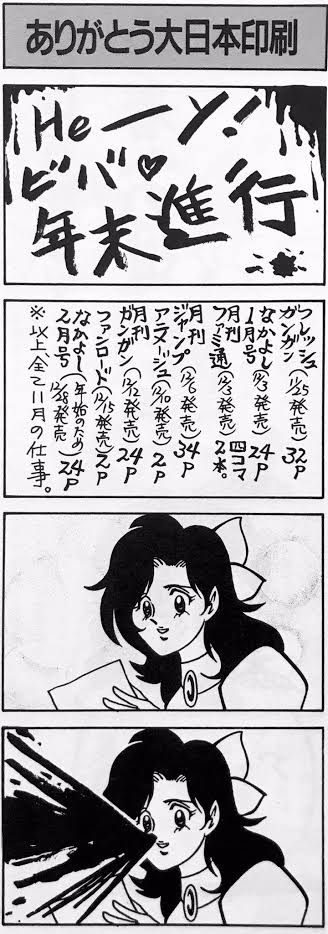 ありがとう大日本印刷
Heーy!
ビバ♡
年末進行
フレッシュ
ガンガン(11/25発売)32P
なかよし
1月号(12/3発売)24P
月刊
ファミ通(12/3発売)四コマ2本。
月刊
ジャンプ(12/6発売)34P
アニメージュ(12/10発売)2P
月刊
ガンガン(12/12発売)24P
ファンロード(12/15発売)2P
なかよし(年始のため
2月号 12/28発売)24P
※以上、全て11月の仕事。